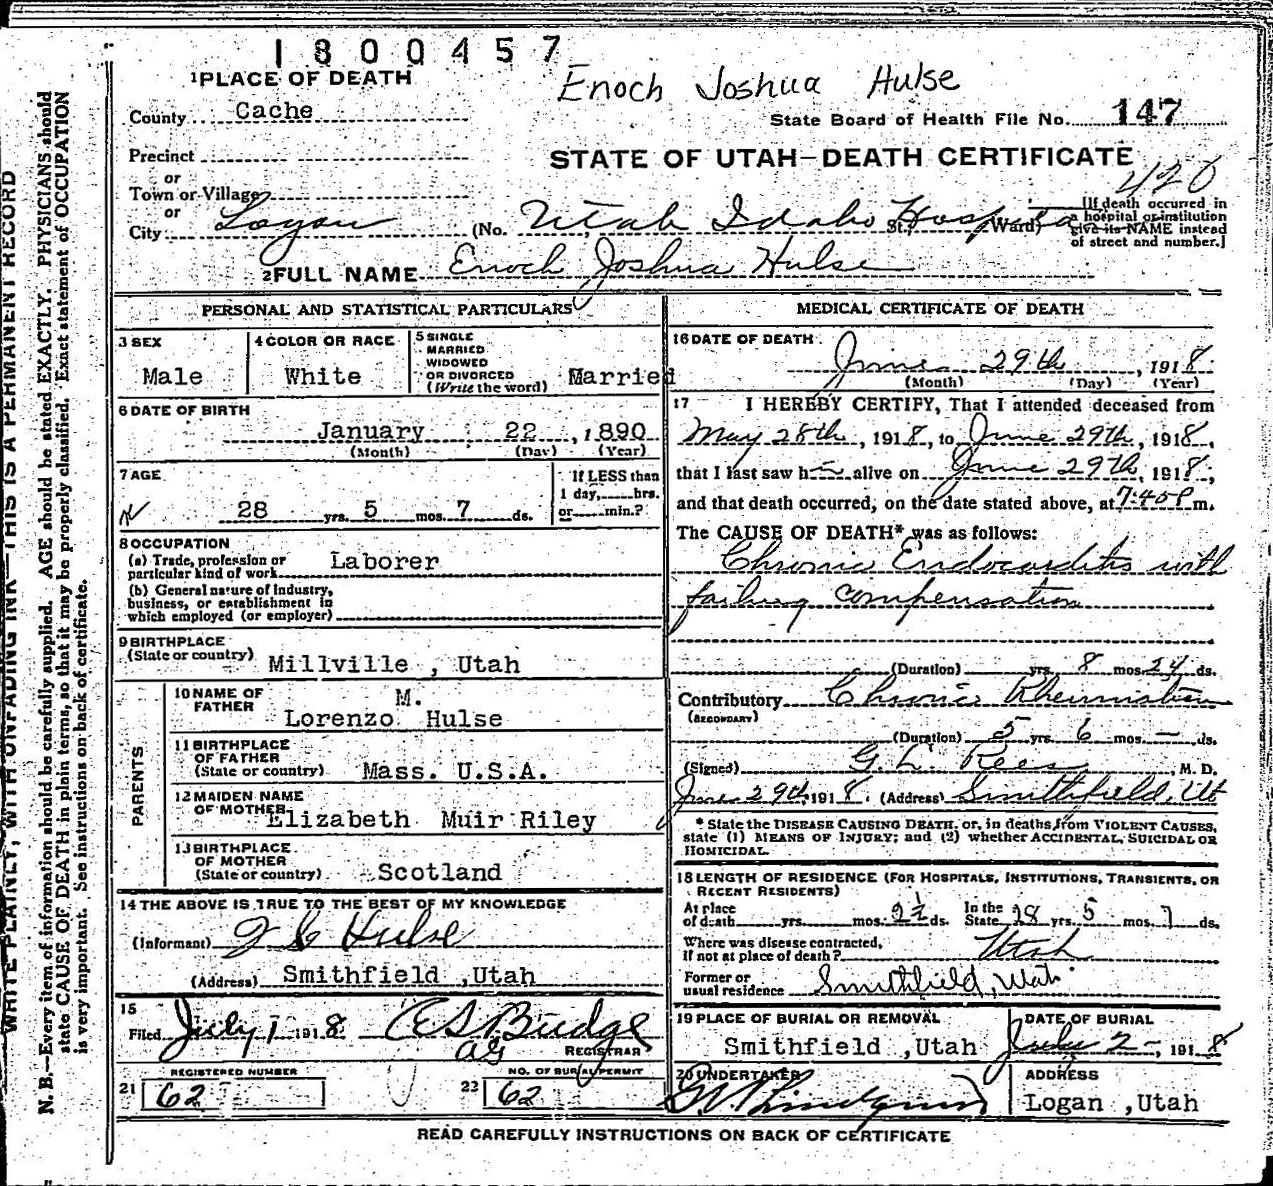 1800457
1 PLACE OF DEATH
Enoch Joshua Hulse
County Cache
State Board of Health File No. 147
Precinct
STATE OF UTAH—DEATH CERTIFICATE
420
or
Town or Village
or
City Logan (No. Utah Idaho Hospital St.; Ward)
[If death occurred in
a hospital or institution
give its NAME instead
of street and number.]
2 FULL NAME Enoch Joshua Hulse
PERSONAL AND STATISTICAL PARTICULARS
3 SEX
Male
4 COLOR OR RACE
White
5 SINGLE
MARRIED
WIDOWED
OR DIVORCED
(Write the word) Married
6 DATE OF BIRTH
January 22, 1890
(Month) (Day) (Year)
7 AGE
28 yrs. 5 mos. 7 ds.
If LESS than
1 day, hrs.
or min.?
8 OCCUPATION
(a) Trade, profession or
particular kind of work Laborer
(b) General nature of Industry,
business, or establishment in
which employed (or employer)
9 BIRTHPLACE
(State or country) Millville , Utah
PARENTS
10 NAME OF
FATHER
M.
Lorenzo Hulse
11 BIRTHPLACE
OF FATHER
(State or country) Mass. U.S.A.
12 MAIDEN NAME
OF MOTHER Elizabeth Muir Riley
13 BIRTHPLACE
OF MOTHER
(State or country) Scotland
14 THE ABOVE IS TRUE TO THE BEST OF MY KNOWLEDGE
(Informant) Hulse
(Address) Smithfield ,Utah
15
Filed July 1 1918. Budge
REGISTRAR
REGISTERED NUMBER
21 62
NO. OF BURIAL PERMIT
23 62
MEDICAL CERTIFICATE OF DEATH
16 DATE OF DEATH
June 29th, 1918
(Month) (Day) (Year)
17 I HEREBY CERTIFY, That I attended deceased from
May 28th, 1918, to June 29th, 1918,
that I last saw h alive on June 29th, 1918;
and that death occurred, on the date stated above, at 7:40 P m.
The CAUSE OF DEATH* was as follows:
Chronic Endocarditis with
failing compensation
(Duration) yrs. 8 mos. 24 ds.
Contributory Chronic Rheumatism
(SECONDARY)
(Duration) 5 yrs. 6 mos. — ds.
(Signed) G. L. Rees, M. D.
June 29th, 1918. (Address) Smithfield, Ut
* State the DISEASE CAUSING DEATH, or, in deaths from VIOLENT CAUSES,
state (1) MEANS OF INJURY; and (2) whether ACCIDENTAL, SUICIDAL OR
HOMICIDAL.
18 LENGTH OF RESIDENCE (FOR HOSPITALS, INSTITUTIONS, TRANSIENTS, OR
RECENT RESIDENTS)
At place
of death yrs. mos. 2½ ds.
In the
State 28 yrs. 5 mos. 7 ds.
Where was disease contracted,
if not at place of death? Utah
Former or
usual residence Smithfield, Utah
19 PLACE OF BURIAL OR REMOVAL
Smithfield ,Utah
DATE OF BURIAL
July 2 —, 1918
20 UNDERTAKER
ADDRESS
Logan ,Utah
READ CAREFULLY INSTRUCTIONS ON BACK OF CERTIFICATE
WRITE PLAINLY, WITH UNFADING INK—THIS IS A PERMANENT RECORD
N. B.—Every item of information should be carefully supplied. AGE should be stated EXACTLY. PHYSICIANS should
state CAUSE OF DEATH in plain terms, so that it may be properly classified. Exact statement of OCCUPATION
is very important. See instructions on back of certificate.